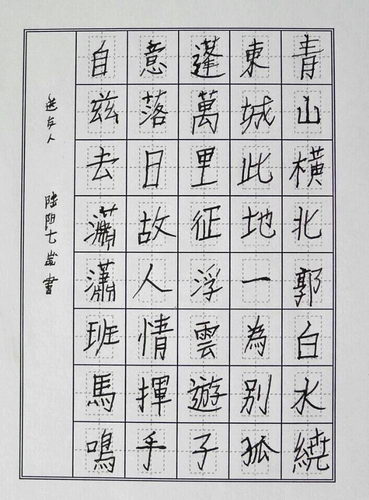 青山横北郭白水繞
東城此地一為別孤
蓬萬里征浮雲遊子
意落日故人情揮手
自茲去瀟瀟班馬鳴
送友人 七歲書